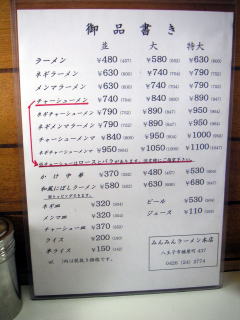 御品書き
並 大 特大
ラーメン ¥480 (457) ¥580 (552) ¥630 (600)
ネギラーメン ¥630 (600) ¥740 (704) ¥790 (752)
メンマラーメン ¥630 (600) ¥740 (704) ¥790 (752)
チャーシューメン ¥740 (704) ¥840 (800) ¥890 (847)
ネギチャーシューメン ¥790 (752) ¥890 (847) ¥950 (904)
ネギメンマラーメン ¥790 (752) ¥890 (847) ¥950 (904)
チャーシューメンマ ¥840 (800) ¥950 (904) ¥1000 (952)
ネギチャーシューメンマ ¥950 (904) ¥1050 (1000) ¥1100 (1047)
チャーシューはロースとバラがあります。
かけ中華 ¥370 (352) ¥480 (457) ¥530 (504)
和風にぼしラーメン ¥580 (552) ¥630 (600) ¥680 (647)
ネギ皿 ¥320 (304)
メンマ皿 ¥320 (304)
チャーシュー皿 ¥370 (352)
ライス ¥200 (190)
半ライス ¥150 (142)
ビール ¥580 (552)
ジュース ¥110 (104)
※( )内は税抜き価格です。
みんみんラーメン本店
八王子市楢原町 437
0426 (24) 3774